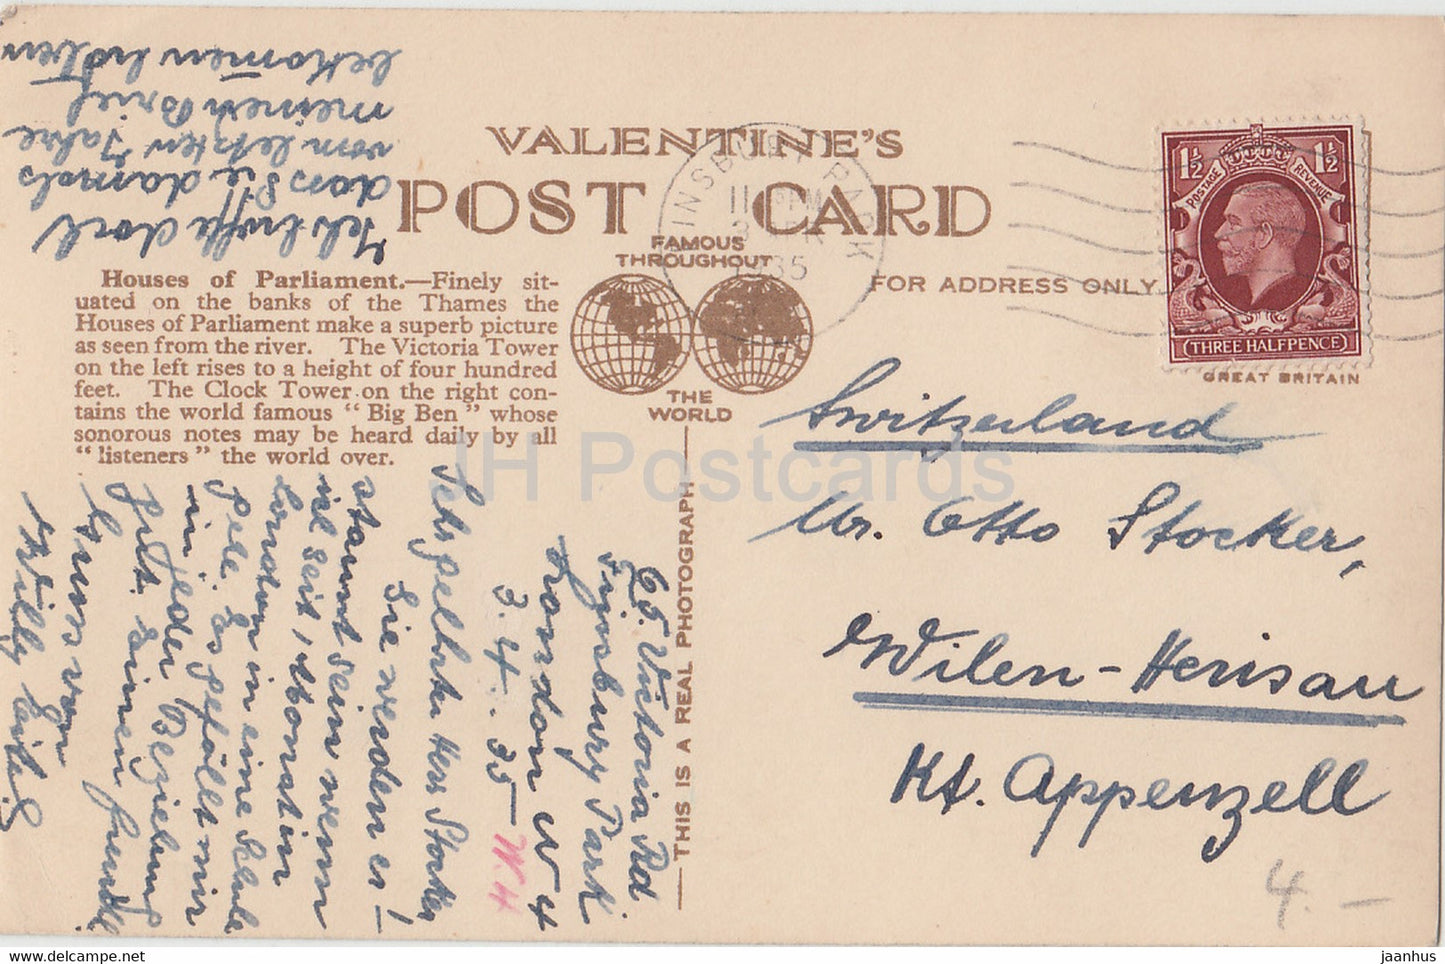 VALENTINE'S
POST CARD
FAMOUS
THROUGHOUT
THE
WORLD
FOR ADDRESS ONLY
Houses of Parliament.—Finely sit-
uated on the banks of the Thames the
Houses of Parliament make a superb picture
as seen from the river. The Victoria Tower
on the left rises to a height of four hundred
feet. The Clock Tower on the right con-
tains the world famous "Big Ben" whose
sonorous notes may be heard daily by all
"listeners" the world over.
THIS IS A REAL PHOTOGRAPH
1½ 1½
POSTAGE REVENUE
THREE HALFPENCE
GREAT BRITAIN
FINSBURY PARK
11 PM
3
1935
Switzerland
Mr. Otto Stocker,
Wilen-Herisau
Kt. Appenzell
4.—
65. Victoria Rd
Finsbury Park
London W 4
3.4.35
N.4
Sehr geehrter Herr Stocker
Sie werden er-
staunt sein wenn
ich seit 1 Monat in
London in eine Schule
gehe. Es gefällt mir
in jeder Beziehung
gut. Einen freundl.
Gruss von
Willy
Ich hoffe doch
dass Sie damals
vom letzten Jahre
meinen Brief
bekomen hatten
JH Postcards
jaanhus